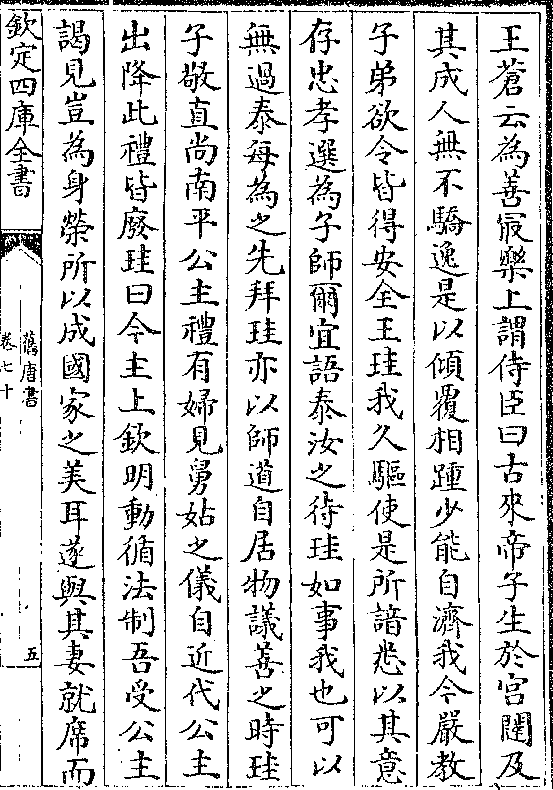 王蒼云為善㝡樂上謂侍臣曰古來帝子生於宫闥及
其成人無不驕逸是以傾覆相踵少能自濟我今嚴教
子弟欲令皆得安全王珪我久驅使是所諳悉以其意
存忠孝選為子師爾宜語泰汝之待珪如事我也可以
無過泰每為之先拜珪亦以師道自居物議善之時珪
子敬直尚南平公主禮有婦見舅姑之儀自近代公主
出降此禮皆廢珪曰今主上欽明動循法制吾受公主
謁見豈為身榮所以成國家之美耳遂與其妻就席而
欽定四庫全書
舊唐書
卷七十
五